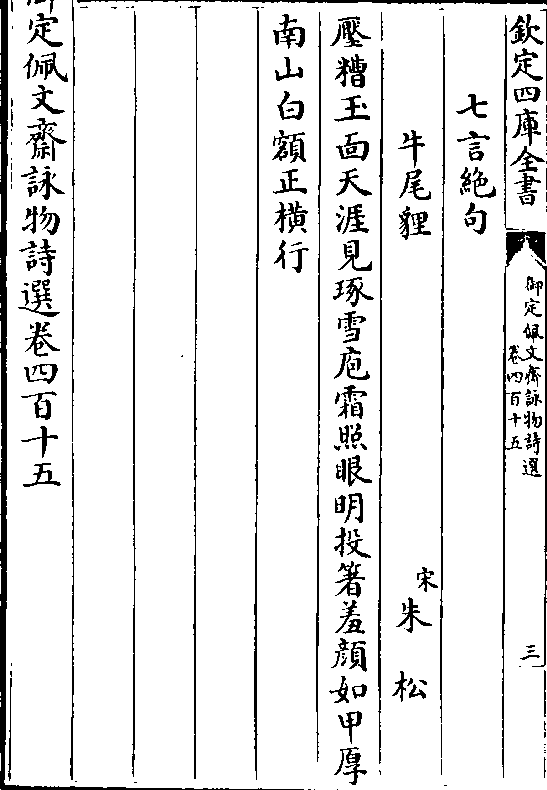 欽定四庫全書
御定佩文齋詠物詩選
卷四百十五
三
七言絶句
牛尾貍
宋
朱松
壓糟玉面天涯見琢雪庖霜照眼明投箸羞顔如甲厚
南山白額正横行
御定佩文齋詠物詩選卷四百十五